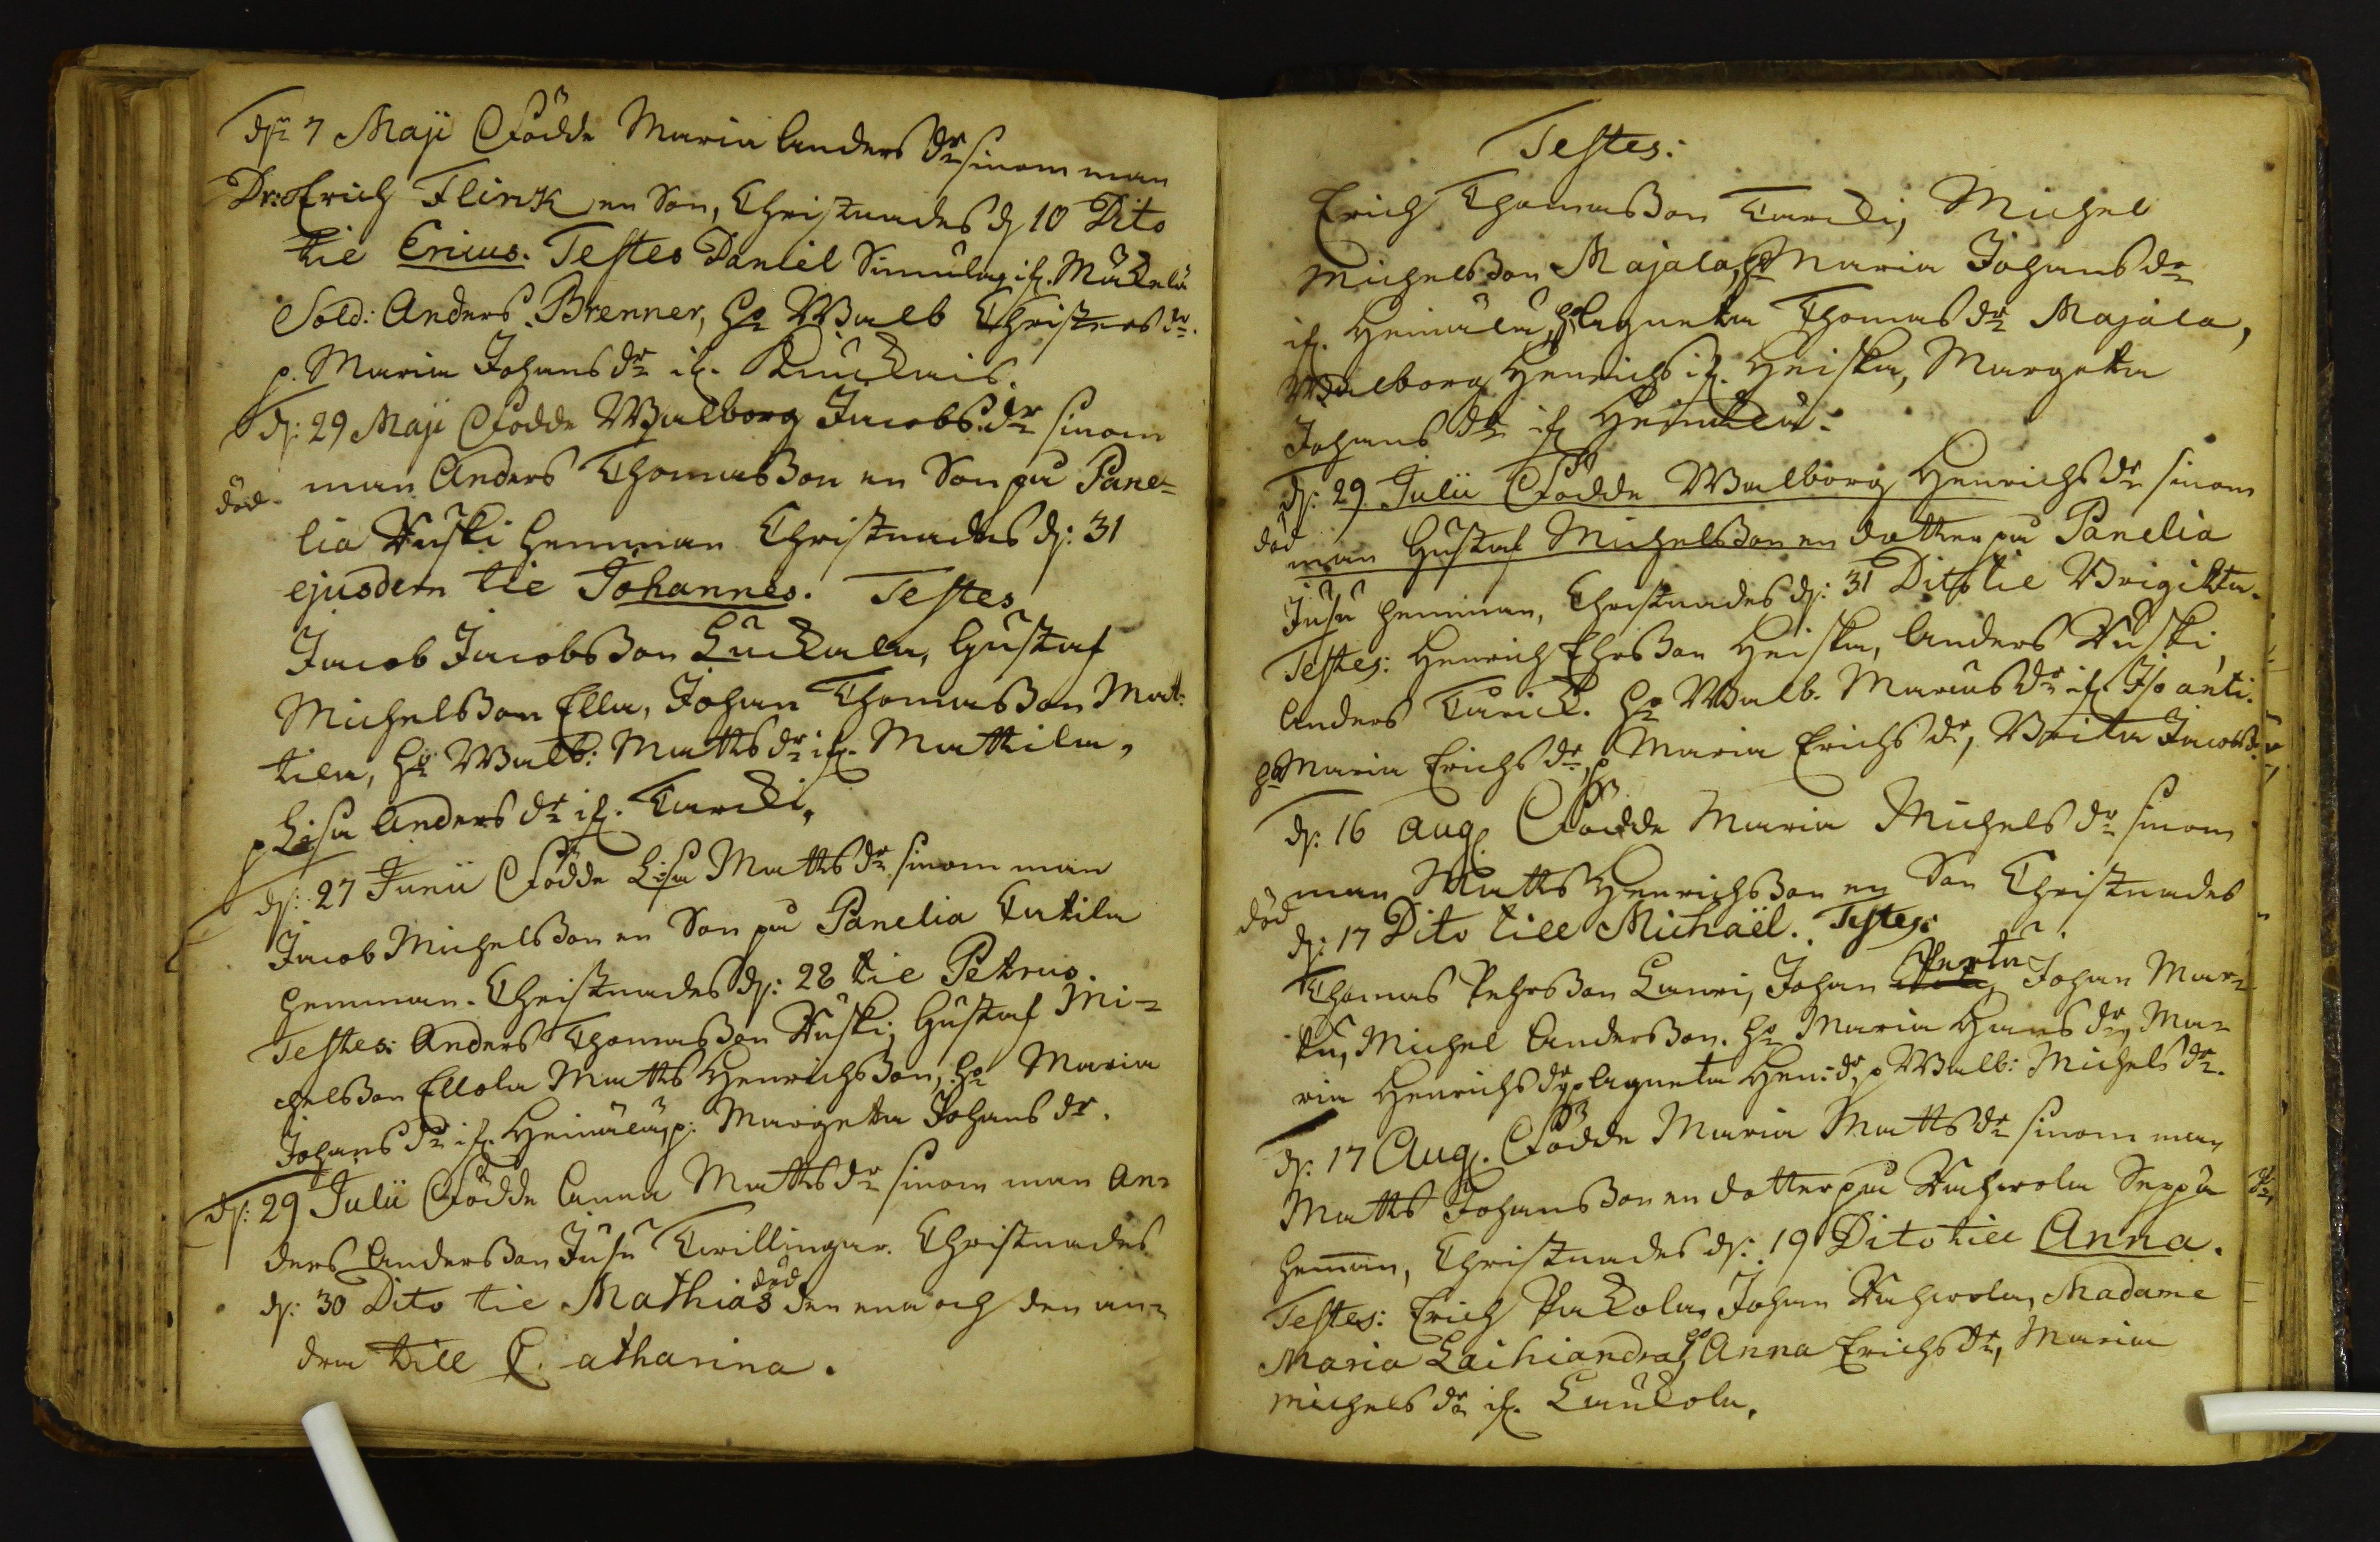 dn 7 Maji Födde Maria Anders dr sinom man
Dr: Erich Flink en Son, Christnades d 10 Dito
til Ericus. Testes Daniel Simula, if. Mäkelä
Sold: Anders Brenner, Ho Walb Christers dr.
p. Maria Johans dr if.
d: 29 Maji Födde Walborg Jacobs dr sinom
död. man Anders Thomasson en Son på Pane-
lia Uuski Hemman Christnades d: 31
ejusdem til Johannes. Testes
Jacob Jacobsson Luckala, Gustaf
Michelsson Ella, Johan Thomasson Mat-
tila, Ho Walb: Matts dr if. Mattila,
p Lisa Anders dr if. Tarcki,
d: 27 Junii Födde Lisa Matts dr sinom man
Jacob Michelsson en Son på Panelia Tutila
Hemman. Christnades d: 28 til Petrus.
Testes: Anders Thomasson Uuski, Gustaf Mi-
chelsson Ellola Matts Henrichsson, Ho Maria
Johans dr if. Heinälä, p: Margeta Johans dr.
d: 29 Julii Födde Anna Matts dr sinom man An-
ders Andersson Jusu Twillingar. Christnades
d: 30 Dito til Mathias död den ena och den an-
dra till C.atharina.
Testes:
Erich Thomasson Tarcki, Michel
Michelsson Majala, Ho Maria Johans dr
if. Heinälä, p Agneta Thomas dr Majala,
Walborg Henrichs if. Heiska, Margeta
Johans dr if Heinälä.
d: 29 Julii Födde Walborg Henrichs dr sinom
död man Gustaf Michelsson en dotter på Panelia
Jusu Hemman, Christnades d: 31 Dito til Brigitta.
Testes: Henrich Ersson Heiska, Anders Uuski,
Anders Turick. Ho Walb. Marcus dr if. Iso anti.
Ho Maria Erichs dr, p Maria Erichs dr, Brita Jacobs dr,
d: 16 Aug. Födde Maria Michels dr sinom
man Matts Henrichsson en Son Christnades
död d: 17 Dito till Michaël. Testes:
Thomas Pehrsson Lauri, Johan Perttu, Johan Mar-
tu, Michel Andersson. Ho Maria Hans dr, Ma-
ria Henrichs dr, p Agneta Hen: dr, p Walb: Michels dr.
d: 17 Aug. Födde Maria Matts dr sinom man
Matts Johansson en dotter på Seppä
Heman, Christnades d: 19 Dito till Anna.
Testes: Erich Packola, Johan Madame
Maria Laihiandra, Ho Anna Erichs dr, Maria
Michels dr if. Lauckola.